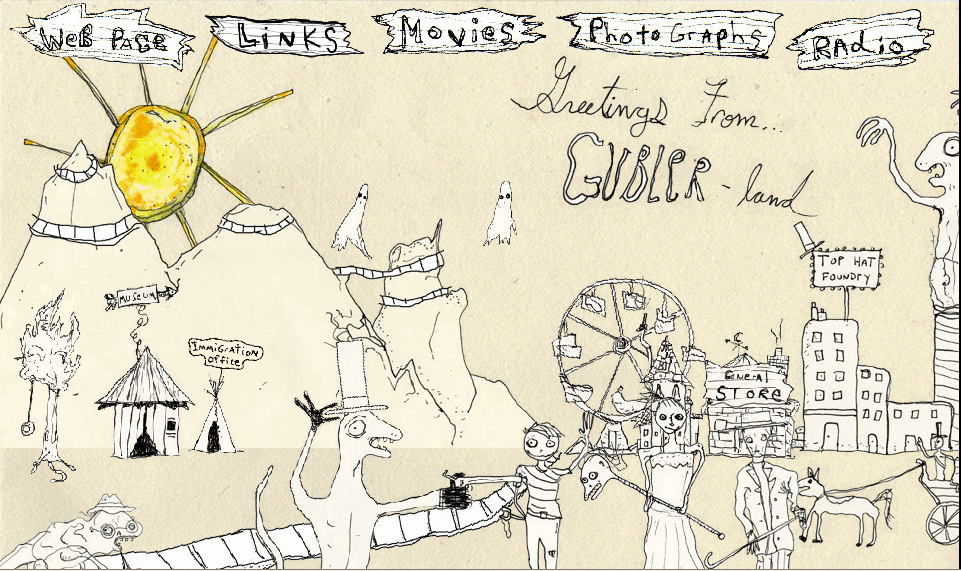 WEB PAGE
LiNKS
MoViES
PhotoGraphs
RADio
Greetings From...
GUBLER-land
TOP HAT
FOUNDRY
MUSEUM
IMMIGRATION
office
General
STORE